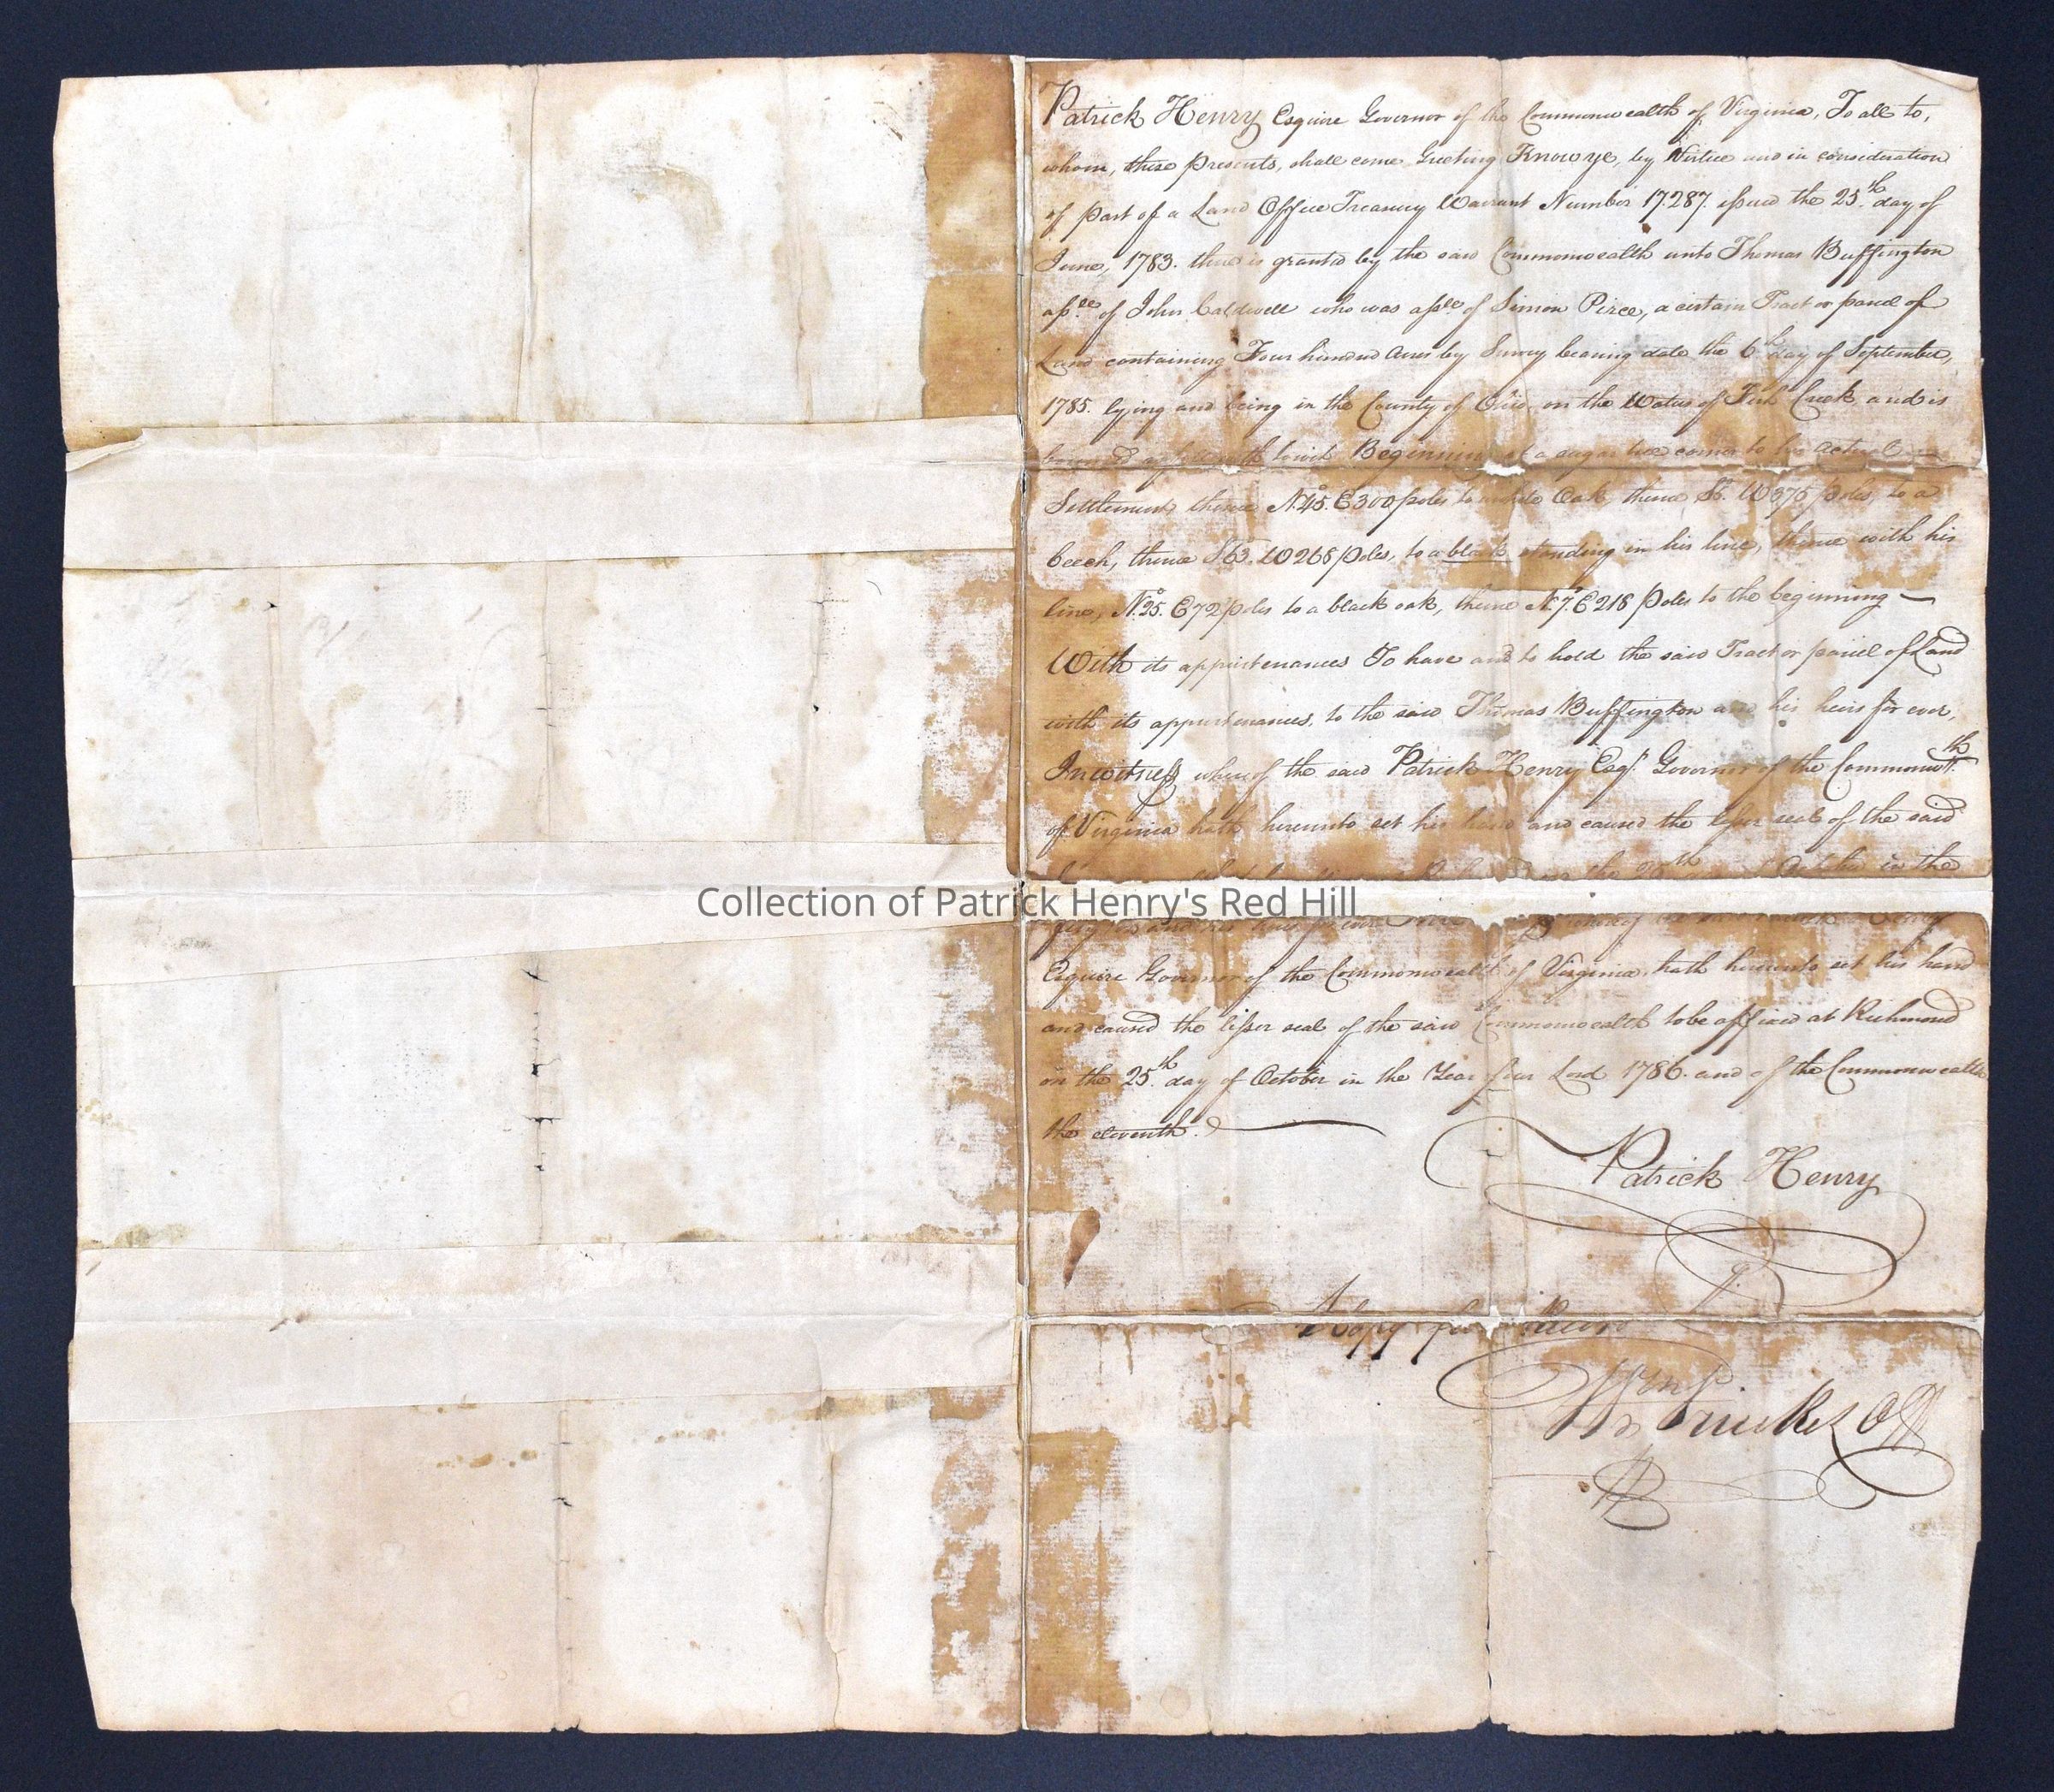 Patrick Henry Esquire Governor of the Commonwealth of Virginia, To all to,
whom, these presents, shall come Greeting Know ye, by Virtue and in consideration
of part of a Land Office Treasury Warrant Number 17.287. issued the 25.th day of
June, 1783. there is granted by the said Commonwealth unto Thomas Buffington
assee of John Caldwell who was assee of Simon Pirce, a certain Tract or parcel of
Land containing Four hundred Acres by Survey bearing date the 6th day of September,
1785. lying and being in the County of Ohio, on the Waters of Fish Creek and is
bounded as followeth towit Beginning at a sugar tree corner to his actual
Settlement thence N.45.°E 300 poles to a white Oak, thence W 375 poles, to a
beech, thence S63.W 268 poles, to a black standing in his line, thence with his
line, N.°25. E 72 poles to a black oak, thence N.°7. E 218 poles to the beginning —
With its appurtenances To have and to hold the said Tract or parcel of Land
with its appurtenances, to the said Thomas Buffington and his heirs for ever,
In witness whereof the said Patrick Henry Esqr. Governor of the Commonwth.
of Virginia hath hereunto set his hand and caused the lesser seal of the said
on the October in the
and his heirs for ever
Esquire Governor of the Commonwealth of Virginia, hath hereunto set his hand
and caused the lesser seal of the said Commonwealth to be affixed at Richmond
on the 25.th day of October in the Year of our Lord 1786. and of the Commonwealth
the eleventh.
Patrick Henry
A Copy from Record
Collection of Patrick Henry's Red Hill